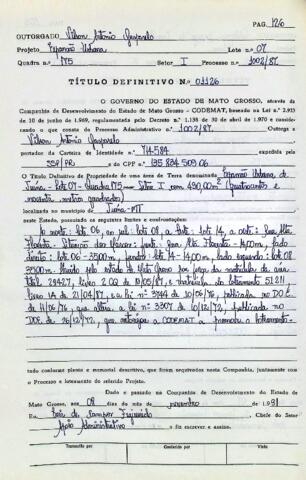 PAG. 126
OUTORGADO Vilson Antonio Gasparelo
Projeto Expansão Urbana Lote n.o 07
Quadra n.o 175 Setor I Processo n.o 1002/87.
TÍTULO DEFINITIVO N.o 01126
O GOVERNO DO ESTADO DE MATO GROSSO, através da
Companhia de Desenvolvimento do Estado de Mato Grosso - CODEMAT, baseado na Lei n.o 2.925
de 10 de junho de 1969, regulamentada pelo Decreto n.o 1.138 de 30 de abril de 1970 e conside-
rando o que consta do Processo Administrativo n.o 1002/87. Outorga a
Vilson Antonio Gasparelo
portador da Carteira de Identidade n.o 714.584 expedida pela
SSP/PR e do CPF n.o 135 834 509 06
O Título Definitivo de Propriedade de uma área de Terra denominada Expansão Urbana de
Juina - Lote 07 - Quadra 175 - Setor I, com 490,00m² (quatrocentos e
noventa metros quadrados)
localizada no município de Juina - MT
neste Estado, possuindo os seguintes limites e confrontações:
Ao norte: lote 06, ao sul: lote 08, a leste: lote 14, a oeste: Rua
frente: Rua 14,00m, lado
direito: lote 06 - 35,00m, fundos: lote 14 - 14,00m, lado esquerdo: lote 08
35,00m. pelo estado de Mato Grosso por força da matrícula de nº
29427, livro 2 CQ de 19/05/87, e matrícula do loteamento 51211
livro 1A de 21/04/87, e a lei nº 3744 de 10/06/76, publicada no D.O.E
de 11/06/76, que altera a lei nº 3307 de 10/12/72, publicada no
DOE de 26/12/72, que autoriza a CODEMAT a promover o loteamento.
tudo conforme planta e memorial descritivo, que foram arquivados nesta Companhia, juntamente com
o Processo e loteamento do referido Projeto.
Dado e passado na Companhia de Desenvolvimento do Estado de
Mato Grosso, aos 08 dias do mês de novembro de 1991
Eu, de Campos Figueiredo Chefe do Setor
Apoio Administrativo o fiz escrever e assino.
Transcrito por
Conferido por
Visto